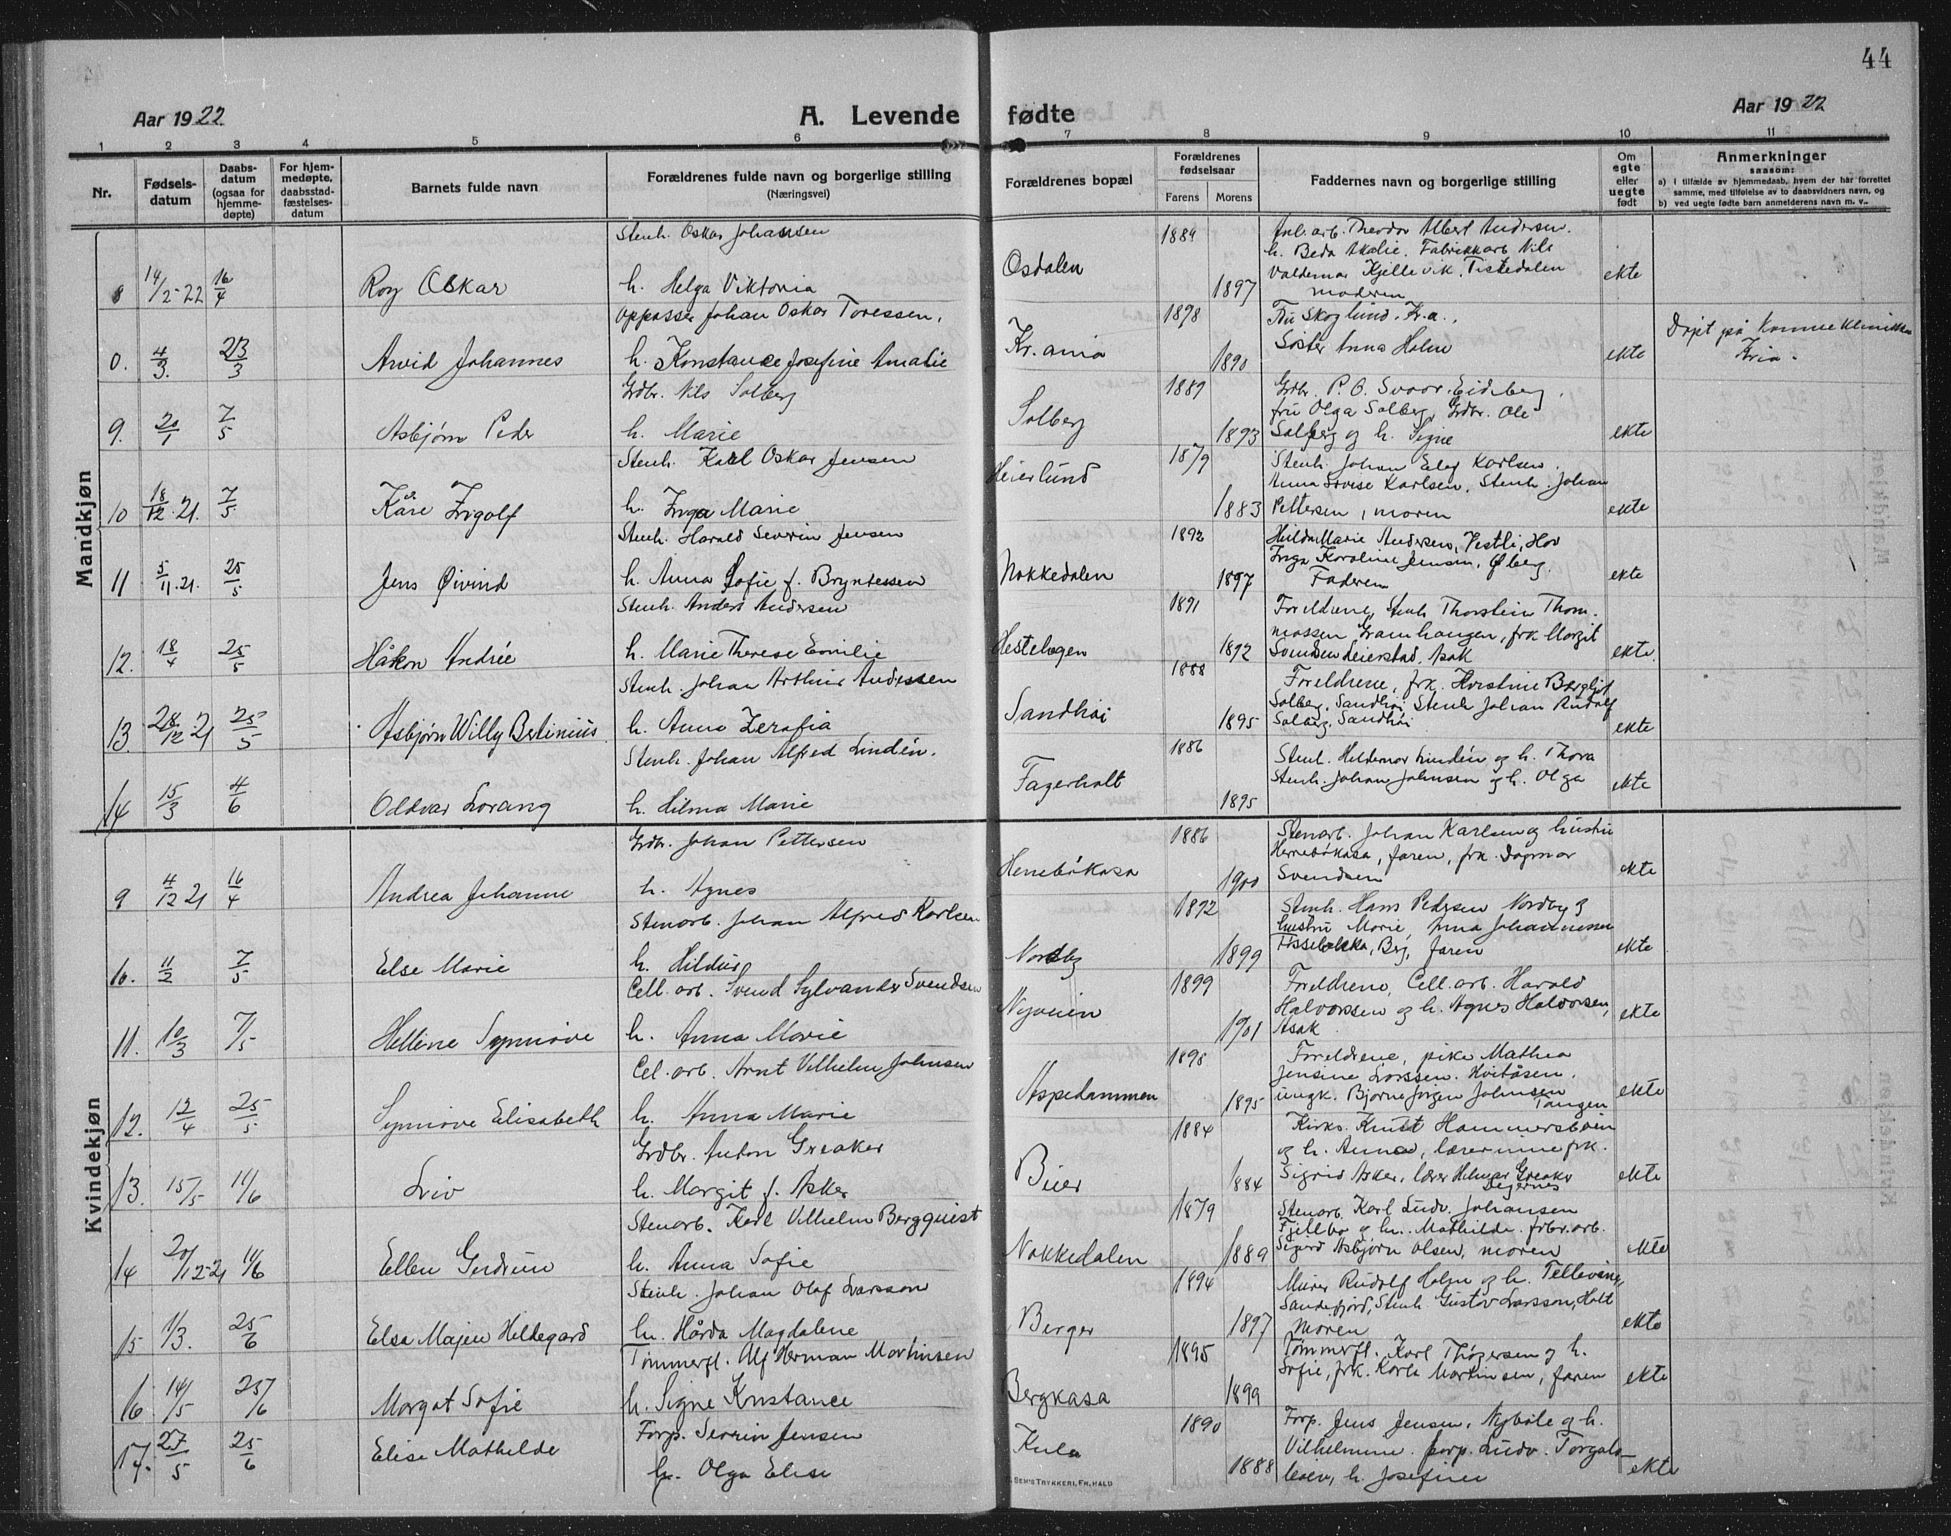 44
Aar 1922
A. Levende fødte
Aar 1922
1 2 3 4 5 6 7 8 9 10 11
Nr.
Fødsels-
datum
Daabs-
datum
(ogsaa for
hjemme-
døpte)
For hjem-
medøpte,
daabsstad-
fæstelses-
datum
Barnets fulde navn
Forældrenes fulde navn og borgerlige stilling
(Næringsvei)
Forældrenes bopæl
Forældrenes
fødselsaar
Farens Morens
Faddernes navn og borgerlige stilling
Om
egte
eller
uegte
født
Anmerkninger
saasom:
a) i tilfælde av hjemmedaab, hvem der har forrettet
samme, med tilføielse av to daabsvidners navn, og
b) ved uegte fødte barn anmelderens navn m. v.
Mandkjøn
8 14/2-22 16/4 Roy Oskar
Stenh. Oskar Johansen
h. Helga Viktoria
Osdalen 1889 1897
arb. Theodor Albert Andersen.
h. Beda Akalie. Fabrikkarb Nils
Valdemar Kjellevik. Tistedalen
moderen
ekte
0. 4/3. 23/3 Arvid Johannes
Oppasser Johan Oskar Toressen.
h. Konstance Josefine Amalie
Kr.ania 1898 1890
Fru Skoglund. Kr.a.
Søster Anna Holm
ekte
Døpt på Kvinneklinikken
Kria.
9. 20/1 7/5 Asbjørn Peder
Grdbr. Nils Solberg
h. Marie
Solberg 1889 1893
Grdbr. P. O. Svoor. Eidsberg.
fru Olga Solberg, Grdbr. Ole
Solberg og h. Signe
ekte
10 18/12.21. 7/5 Kåre Ingolf
Stenh. Karl Oskar Jensen
h. Inga Marie
Heierlund 1879 1883
Stenh. Johan Elof Karlsen.
Anna Lovise Karlsen, Stenh. Johan
Pettersen, moren
ekte
11 5/11.21. 25/5 Jens Øivind
Stenh. Harald Severin Jensen
h. Anna Sofie f. Bryntessen
Nokkedalen 1892 1897
Hulda Marie Andersen, Vestli, Hov
Inga Karoline Jensen, Øberg.
Faderen
ekte
12. 18/4 25/5 Håkon Andrée
Stenh. Anders Andersen
h. Marie Therese Emilie
Hestehagen 1891 1892
Foreldrene, Stenh Thorstein Thom-
massen Gramhaugen, frk Margit
Svendsen Leierstad. Asak
ekte.
13. 28/12 21 25/5 Asbjørn Willy Bertinius
Stenh. Johan Arthur Andersen
h. Anna Zerafia
Sandhøi 1888 1895
Foreldrene, frk. Horstine Bergljot
Solberg, Sandhøi Stenh Johan Rudolf
Solberg, Sandhøi
ekte
14 15/3 4/6 Oddvar Lorang
Stenh. Johan Alfred Lindén.
h. Hilma Marie
Fagerholt 1886 1895
Stenh. Heldemar Lindén og h. Thora
Stenh. Johan Johnsen og h. Olga
ekte
Kvindekjøn
9 4/12 21 16/4 Andrea Johanne
Grdbr. Johan Pettersen
h. Agnes
Hennebøkasa 1886 1900
Stenarb. Johan Karlsen og hustru
Hernebøkasa, faren, frk. Dagmar
Svendsen
ekte
10. 11/2 7/5 Else Marie
Stenarb. Johan Alfred Karlsen
h. Hildur
Nordby 1892 1899
Stenh. Hans Pedersen Nordby og
hustru Marie, Anna Johannessen
Tisseløkka, Berg, faren
ekte
11. 10/3 7/5 Hellene Synnøve
Cell. arb. Svend Sylvander Svendsen
h. Anna Marie
Nyveien 1899 1901
Foreldrene, Cell.arb. Harald
Halvorsen og h. Agnes Halvorsen,
Asak
ekte
12. 12/4 25/5 Synnøve Elisabeth
Cel. arb. Arnt Vilhelm Johnsen
h. Anna Marie
Aspedammen 1898 1895
Foreldrene, pike Mathea
Jensine Larssen. Hvitåsen.
ungk. Bjarne Jørgen Johnsen
Tangen
ekte
13. 15/5 11/6 Liv
Grdbr. Anton Greaker
h. Margit f. Asker
Büer 1884 1884
Kirks. Knut Hammersbøen
og h. Anna, lærerinne frk.
Sigrid Asker, lærer Hilmar Greaker
Degernes
ekte
14 20/12-21 11/6 Ellen Gudrun
Stenarb. Karl Vilhelm Bergquist
h. Anna Sofie
Nokkedalen 1879 1889
Stenarb. Karl Ludv. Johansen
Fjellbo og h. Mathilde. frbr. arb.
Sigurd Asbjørn Olsen, moren
ekte
15 11/3. 25/6 Elsa Majen Hildegard
Stenh. Johan Olof Larsson
h. Hårda Magdalene
Berger 1894 1897
Murer Rudolf Holm og h. Tellevine,
Sandefjord, Stenh. Gustov Larsson, Holt
Moren
ekte
16 14/5 25/6 Margot Sofie
Tømmerfl. Alf Herman Martinsen
h. Signe Konstance
Bergkasa 1895 1899
Tømmerfl. Karl Thøgersen og h.
Sofie, frk. Karla Martinsen, faren
ekte
17. 27/5 25/6 Elise Mathilde
Forp. Severin Jensen
h. Olga Elise
Kula 1890 1888
Forp. Jens Jensen, Nybøle og h.
Vilhelmine. forp. Ludv. Torgals-
bøen, h. Josefine
ekte
SEM'S TRYKKERI, FR.HALD